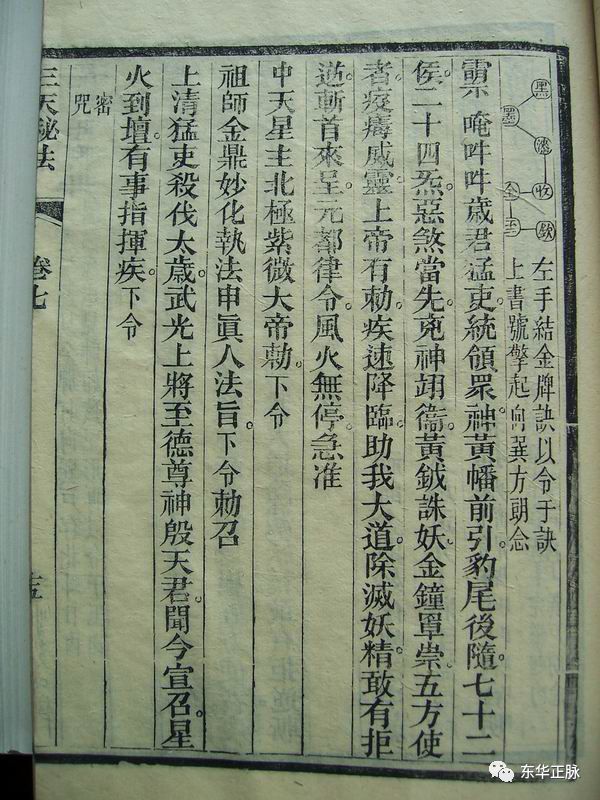 左手結金牌訣以令于訣
上書號擎起向巽方朗念
霸示唵吽吽歲君猛吏統領眾神黃幡前引豹尾後隨七十二
侯二十四炁惡煞當先兇神翊衞黃鉞誅妖金鐘罩祟五方使
者疫癘威靈上帝有勅疾速降臨助我大道除滅妖精敢有拒
逆斬首來呈元都律令風火無停急准
中天星主北極紫微大帝勅下令
祖師金鼎妙化執法申眞人法旨下令勅召
上清猛吏殺伐太歲武光上將至德尊神殷天君聞今宣召星
火到壇有事指揮疾下令
密
咒
三天秘法
卷七
东华正脉